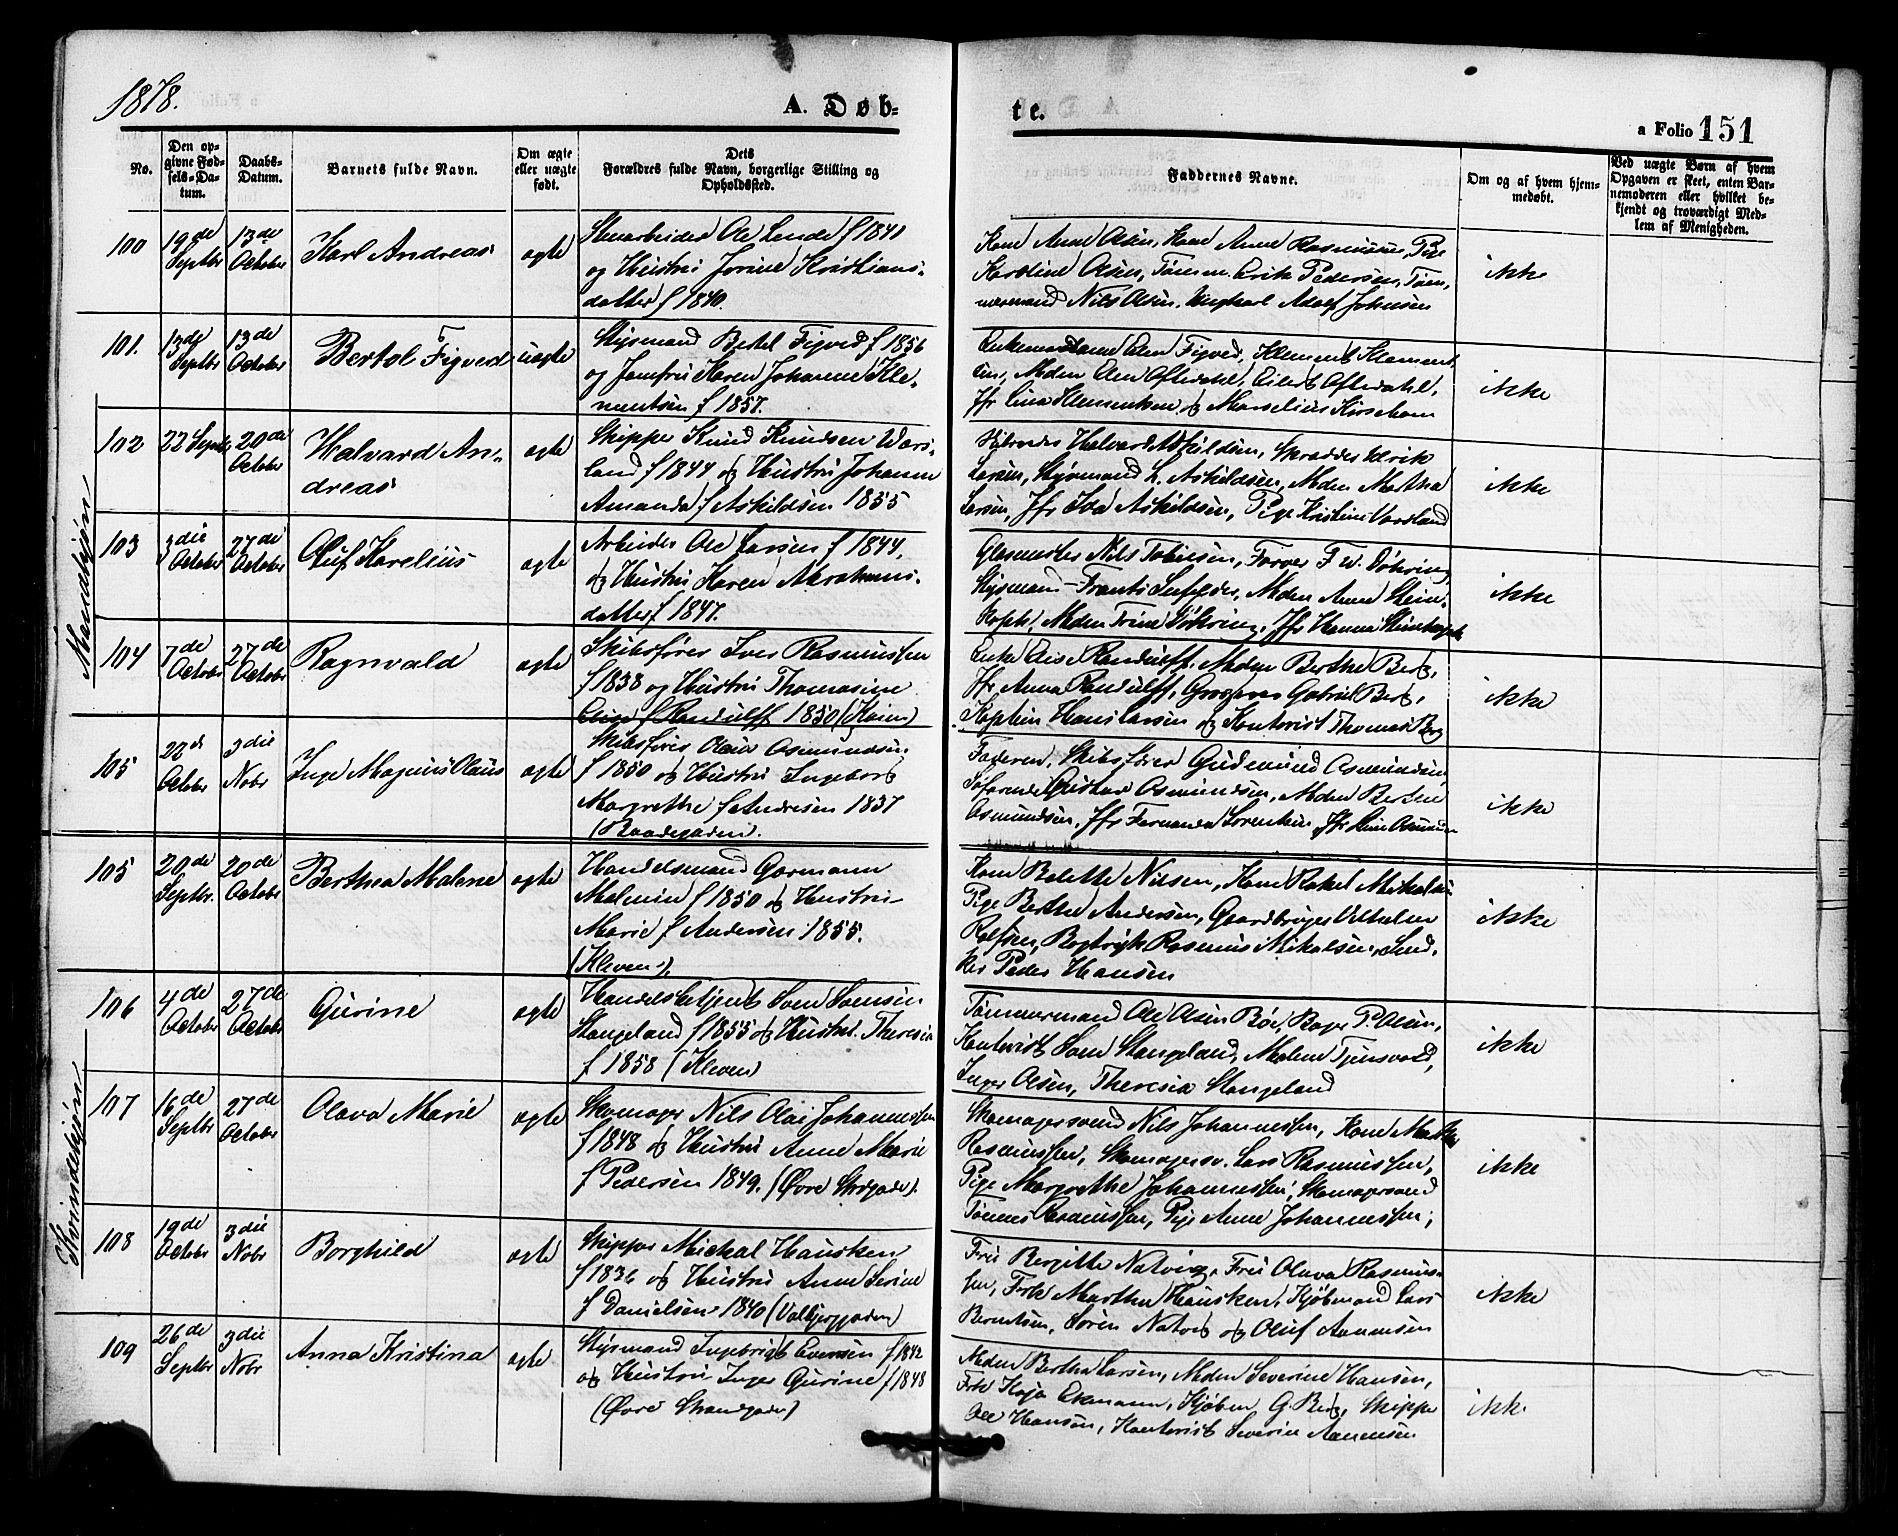 1878.
A. Døb-
te.
a Folio 151
No.
Den op-
givne Fød-
sels-Da-
tum.
Daabs-
Datum.
Barnets fulde Navn.
Om ægte
eller uægte
født.
Dets
Forældres fulde Navn, borgerlige Stilling og
Opholdssted.
Faddernes Navne.
Om og af hvem hjem-
medøbt.
Ved uægte Børn af hvem
Opgaven er skeet, enten Bar-
nemoderen eller hvilket be-
kjendt og troværdigt Med-
lem af Menigheden.
Mandkjøn
100
19de
Septbr
13de
October
Karl Andreas
ægte
Stuarbeider Ole Lende f 1841
og Hustru Jorine Kristians-
datter f 1840.
Kone Anne Olsen, Kone Anne Rasmussen, Pige
Karoline Olsen, Tømm. Erik Pedersen, Tøm-
mermand Nils Olsen, Ungkarl Adolf Johnsen
ikke
101.
13de
Septbr
13de
October
Bertol Figved
uægte
Styrmand Bertel Figved f 1856
og Jomfru Karen Johanne Kle-
mentsen f 1857.
Enkemadame Elen Figved, Klement Klement-
sen, Mdm Elen Aftedahl, Eilert Aftedahl,
Jfr Lina Klementsen og Marselius Kirsebom
ikke
102
22 Septbr
20de
October
Halvard An-
dreas
ægte
Skipper Knud Knudsen Vars-
land f 1844 og Hustru Johanne
Amanda f Askildsen 1855
Halvard Askildsen, Skrædder Idrik
Larsen, Styrmand L. Askildsen, Mdm Martha
Larsen, Jfr Ida Askildsen, Pige Kristine Varsland
ikke
103
3die
October
27de
October
Oluf Karelius
ægte
Arbeider Ole Larsen f 1844,
og Hustru Karen Abrahams-
datter f 1847.
Glasmester Nils Tobiesen, Farver F. W. Døhring,
Styrmand Frants, Mdm Anne Stein-
kopf, Mdm Trine Döhring, Jfr Hanna Steinkopf
ikke
104
7de
October
27de
October
Ragnvald
ægte
Skibsfører Iver Rasmussen
f 1838 og Hustru Thomasine
Elise f Randulff 1850 (Kaien)
Enke Elise Randulff, Mdm Berthe Berg,
Jfr Anna Randulff, Gabriel Berg,
Kaptein Hans Larsen og Kontorist Thomas Berg
ikke
105
October
3die
Nobr
Inge Magnus Olaus
ægte
Skibsfører Olaus Osmundsen
f 1850 og Hustru Ingeborg
Margrethe f Andresen 1857
(Baadegaden).
Faderen, Skibsfører Gudmund Osmundsen,
Søfarende Gustav Osmundsen, Mdm Berthe
Osmundsen, Jfr Fernanda Lorentsen, Jfr Osmundsen
ikke
Kvindekjøn
105
20de
Septbr.
20de
October
Berthea Malene
ægte
Handelsmand Garmann
Malmin f 1850 og Hustru
Marie f Andersen 1855.
(Kleven).
Kone Bolette Nilsen, Kone Rakel Mikalsen
Pige Berthe Andersen, Gaardbruger Vilhelm
Rolfsen, Bogtryk Rasmus Mikalsen, Snd-
ker Peder Hansen
ikke
106
4de
October
27de
October
Gurine
ægte
Handelsbetjent Sven Svensen
Stangeland f 1855 og Hustru Theresia
f 1858 (Kleven)
Tømmermand Ole Olsen Bøe, Bager P. Olsen,
Kontorist Sven Stangeland, Malene Tjensvold,
Inger Olsen, Theresia Stangeland
ikke
107
16de
Septbr
27de
October
Olava Marie
ægte
Skomager Nils Olai Johannessen
f 1848 og Hustru Anne Marie
f Pedersen 1849. (Øvre Strdgade).
Skomagersvend Nils Johannessen, Kone Marthe
Rasmussen, Skomagersv. Lars Rasmussen,
Pige Margrethe Johannessen, Skomagersvend
Tønnes Rasmussen, Pige Anne Johannessen,
ikke
108
19de
Octobr
3die
Nobr
Borghild
ægte
Skipper Mickal Hausken
f 1836 og Hustru Anne Serine
f Danielsen 1840 (Valbjerggaden)
Fru Bergitte Natvig, Fru Olava Rasmus-
sen, Frk Martha Hausken, Kjøbmand Lars
Berentsen, Sören Natvig og Oluf Aanensen
ikke
109
26de
Septbr
3die
Nobr
Anna Kristina
ægte
Styrmand Ingebrigt Evensen f 1842
og Hustru Inger Gurine f 1848
(Øvre Strandgade)
Mdm Bertha Larsen, Mdm Severine Hansen,
Frk Kaja Ekmann, Kjøbm. G. Berg, Skipper
Ole Hansen, Kontorist Severin Aanensen
ikke